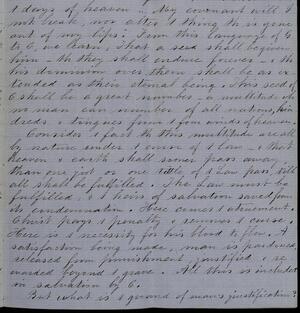 & days of heaven. My covenant will I
not break, nor alter & thing tht is gone
out of my lips. From this language of G
to C, we learn, That a seed shall be given
him – tht they shall endure forever – & tht
his dominion over them shall be as ex-
tended as their eternal being. This seed of
C shall be a great number – a multitude wh
no man can number of all nations, kin
dreds & tongues from & four winds of heaven.
Consider & fact tht this multitude are all
by nature under & curse of & law – & tht
heaven & earth shall sooner pass away
than one jot or one tittle of & Law pass, till
all shall be fulfilled. The Law must be
fulfilled, & & heirs of salvation saved from
its condemnation. Here comes & atonement.
Christ pays & penalty & removes & curse.
Here is & necessity for his blood to flow. A
satisfaction being made, man is pardoned,
released from punishment, justified & re-
warded beyond & grave. All this is included
in salvation by C.
But what is & ground of man's justification?